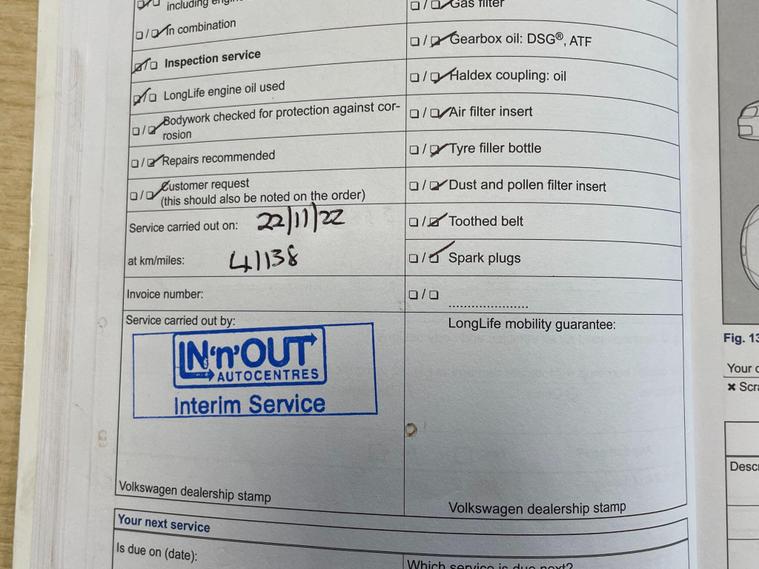 including
In combination
Inspection service
LongLife engine oil used
Bodywork checked for protection against cor-
rosion
Repairs recommended
Customer request
(this should also be noted on the order)
Service carried out on: 22/11/22
at km/miles: 41138
Invoice number:
Service carried out by:
IN'n'OUT
AUTOCENTRES
Interim Service
Volkswagen dealership stamp
Gas filter
Gearbox oil: DSG®, ATF
Haldex coupling: oil
Air filter insert
Tyre filler bottle
Dust and pollen filter insert
Toothed belt
Spark plugs
LongLife mobility guarantee:
Volkswagen dealership stamp
Your next service
Is due on (date):
Which service is due next?
Fig. 13
Your
Scr
Desc